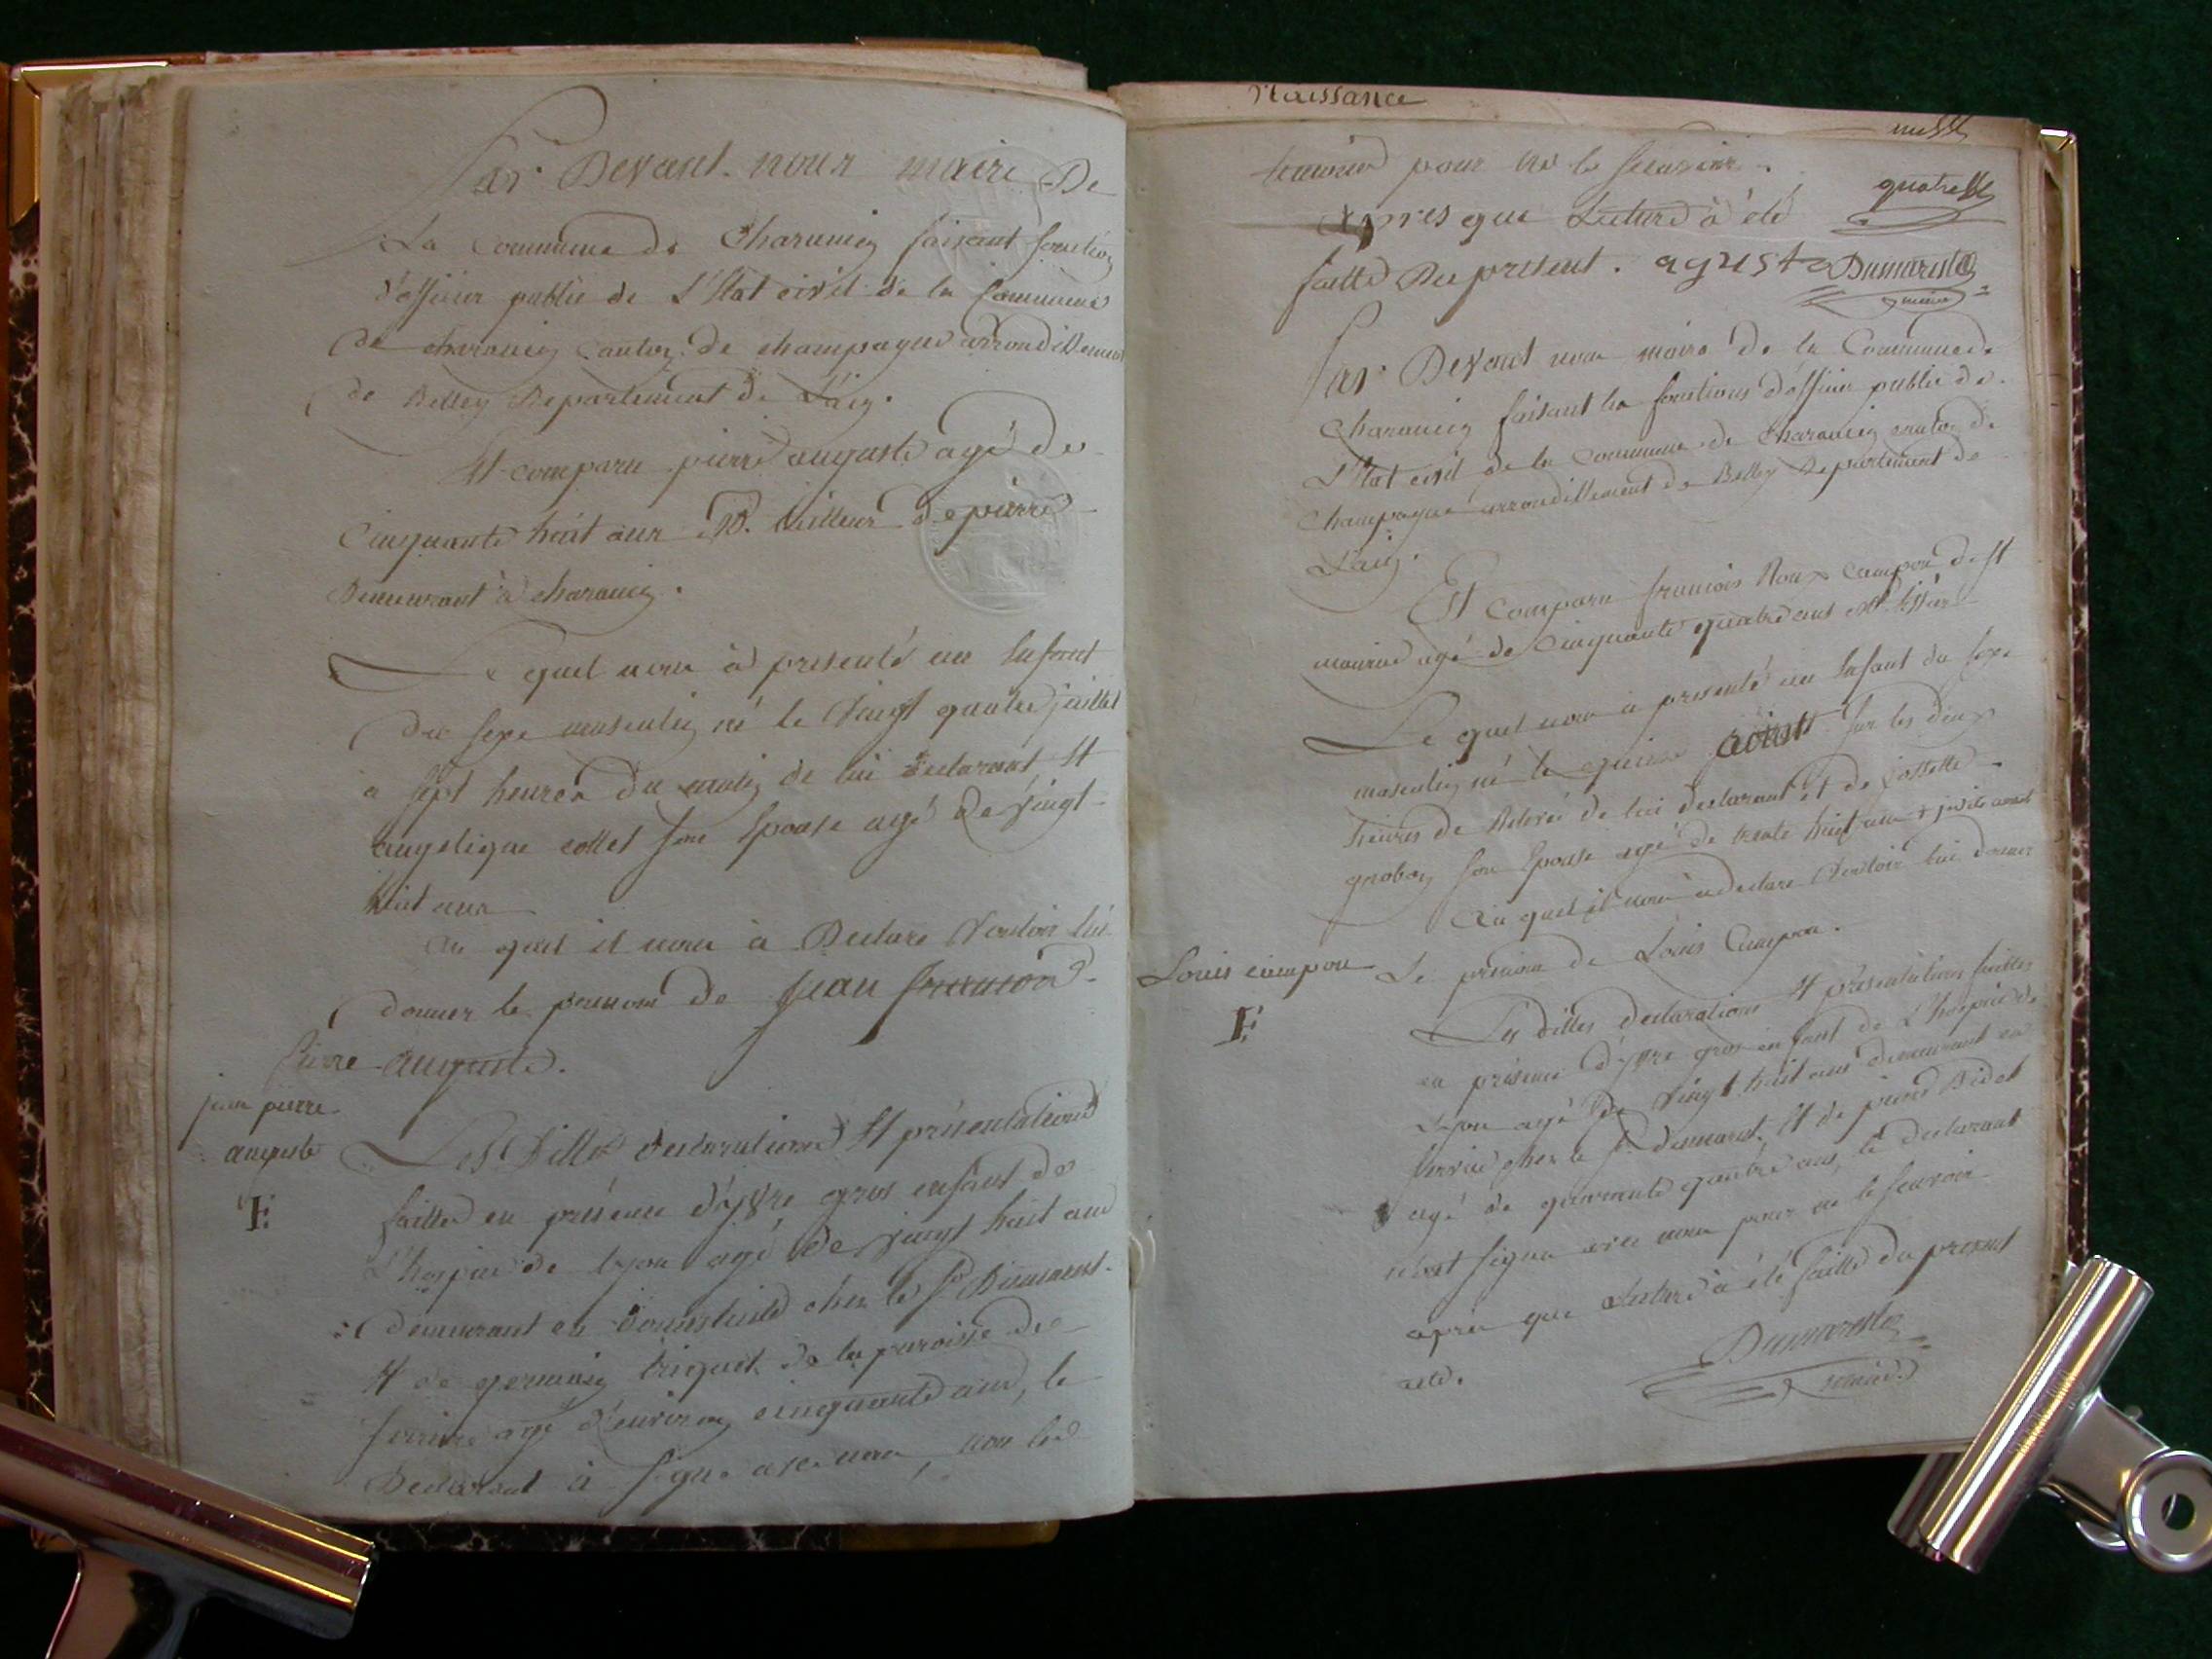 Par Devant nous maire De
La Commune de Charancin faisant fonction
d'officier public de L'Etat civil de la Commune
de charancin Canton de champagne arrondissement
de Belley Departement de L'ain.
Et comparu pierre auguste agé de
Cinquante huit ans tailleur de pierre
Demeurant à charancin.
Le quel nous à presenté un Enfant
du sexe masculin né le Vingt quatre juillet
a sept heures du matin de lui declarant Et
angelique collet son Epouse agé de Vingt
huit ans
au quel il nous à Declare Vouloir lui
donner le prenom de jean
Pierre auguste.
jean pierre
auguste
Les dittes declarations Et présentations
faittes en présence gros enfant de
L'hospice de lyon agé de Vingt huit ans
demeurant en domesticité chez le Sr Dumarest.
Et de germain triquet de la paroisse de
agé d'environ cinquante ans, le
Declarant à signé avec nous, non les
Naissance
temoins pour ne le scavoir.
quatre
Apres que Lecture à été
faitte Du present. aguste Dumarest
maire
Par Devant nous maire de la Commune de
Charancin faisant les fonctions d'officier public de
L'Etat civil de la Commune de Charancin canton de
Champagne arrondissement de Belley Departement de
L'ain.
Et Comparu francois Roux Campon de St
maurice agé de Cinquante quatre ans
Le quel nous à presenté un Enfant du sexe
masculin né le quinze aoust sur les deux
heures de Relevé de lui declarant et de josette
son Epouse agé de trente huit ans
Au quel il nous à declare Vouloir lui donner
Louis campon Le prenom de Louis Campon.
Les dittes declarations Et présentations faittes
en présence gros enfant de L'hospice de
Lyon agé de Vingt huit ans demeurant en
service chez le Sr dumarest, Et de pierre Bidet
agé de quarante quatre ans, le declarant
n'ont signé avec nous pour ne le scavoir.
apres que Lecture à été faitte du present
acte.
Dumarest
maire